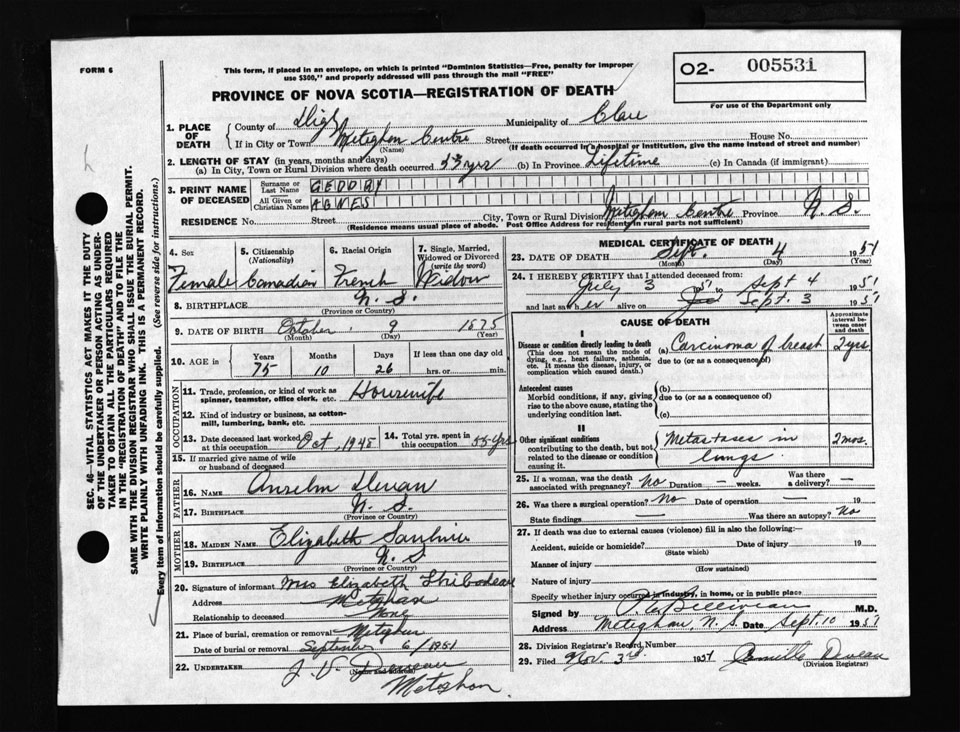 FORM 6
This form, if placed in an envelope, on which is printed "Dominion Statistics—Free, penalty for improper
use $300," and properly addressed will pass through the mail "FREE"
02- 005531
For use of the Department only
PROVINCE OF NOVA SCOTIA—REGISTRATION OF DEATH
1. PLACE OF DEATH
County of Digby Municipality of Clare
If in City or Town Meteghan Centre Street House No.
(Name) (If death occurred in a hospital or institution, give the name instead of street and number)
2. LENGTH OF STAY (in years, months and days)
(a) In City, Town or Rural Division where death occurred yrs (b) In Province Lifetime (c) In Canada (if immigrant)
3. PRINT NAME OF DECEASED
Surname or Last Name GEDDRY
All Given or Christian Names AGNES
RESIDENCE No. Street City, Town or Rural Division Meteghan Centre Province N. S.
(Residence means usual place of abode. Post Office Address for residents in rural parts not sufficient)
4. Sex Female
5. Citizenship (Nationality) Canadian
6. Racial Origin French
7. Single, Married, Widowed or Divorced (write the word) Widow
8. BIRTHPLACE N. S.
(Province or Country)
9. DATE OF BIRTH October 9 1875
(Month) (Day) (Year)
10. AGE in Years 75 Months 10 Days 26 If less than one day old hrs. or min.
OCCUPATION
11. Trade, profession, or kind of work as spinner, teamster, office clerk, etc. Housewife
12. Kind of industry or business, as cotton-mill, lumbering, bank, etc.
13. Date deceased last worked at this occupation Oct. 1948
14. Total yrs. spent in this occupation 55 yrs
15. If married give name of wife or husband of deceased
FATHER
16. NAME Anselm
17. BIRTHPLACE N. S.
(Province or Country)
MOTHER
18. MAIDEN NAME Elizabeth Saulnier
19. BIRTHPLACE N. S.
(Province or Country)
20. Signature of informant Miss Elizabeth Thibodeau
Address Meteghan
Relationship to deceased None
21. Place of burial, cremation or removal Meteghan
Date of burial or removal September 6/1951
22. UNDERTAKER J. V. Deveau
(Name and Address)
Meteghan.
MEDICAL CERTIFICATE OF DEATH
23. DATE OF DEATH Sept. 4 1951
(Month) (Day) (Year)
24. I HEREBY CERTIFY that I attended deceased from:
July 3 1951 to Sept 4 1951
and last saw her alive on Sept. 3 1951
CAUSE OF DEATH
Approximate interval between onset and death
I
Disease or condition directly leading to death
(This does not mean the mode of dying, e.g., heart failure, asthenia, etc. It means the disease, injury, or complication which caused death.)
(a) Carcinoma of breast 2 yrs
due to (or as a consequence of)
Antecedent causes
Morbid conditions, if any, giving rise to the above cause, stating the underlying condition last.
(b)
due to (or as a consequence of)
(c)
II
Other significant conditions contributing to the death, but not related to the disease or condition causing it.
Metastases in lungs. 2 mos.
25. If a woman, was the death associated with pregnancy? No Duration — weeks. Was there a delivery? —
26. Was there a surgical operation? No Date of operation — 19
State findings — Was there an autopsy? No
27. If death was due to external causes (violence) fill in also the following:—
Accident, suicide or homicide? Date of injury 19
(State which)
Manner of injury
(How sustained)
Nature of injury
Specify whether injury occurred in industry, in home, or in public place
Signed by Belliveau M.D.
Address Meteghan, N. S. Date Sept. 10 1951
28. Division Registrar's Record Number
29. Filed Nov. 3rd. 1951 Camille Deveau
(Division Registrar)
SEC. 46—VITAL STATISTICS ACT MAKES IT THE DUTY
OF THE UNDERTAKER OR PERSON ACTING AS UNDER-
TAKER TO OBTAIN ALL THE PARTICULARS REQUIRED
IN THE "REGISTRATION OF DEATH" AND TO FILE THE
SAME WITH THE DIVISION REGISTRAR WHO SHALL ISSUE THE BURIAL PERMIT.
WRITE PLAINLY WITH UNFADING INK. THIS IS A PERMANENT RECORD.
Every item of information should be carefully supplied. (See reverse side for instructions.)